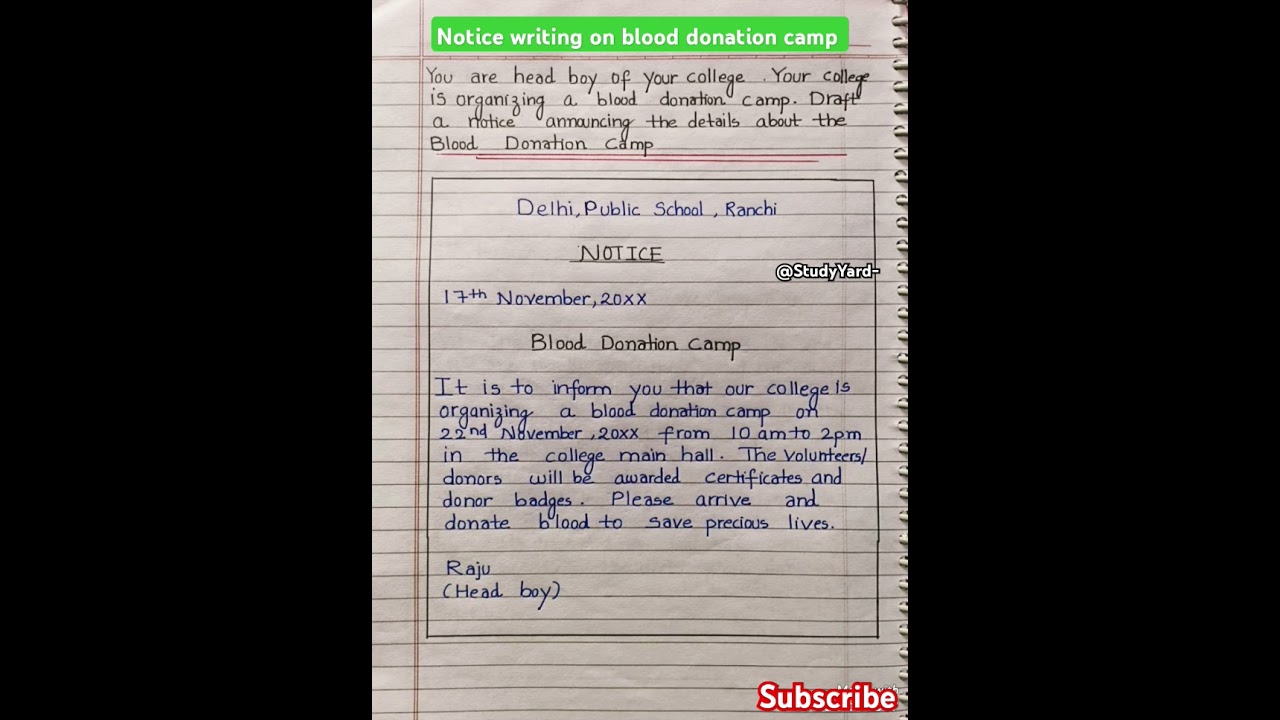 Notice writing on blood donation camp
You are head boy of your college . Your college
is organizing a blood donation camp. Draft
a notice announcing the details about the
Blood Donation Camp
Delhi, Public School , Ranchi
NOTICE
@StudyYard-
17th November, 20XX
Blood Donation Camp
It is to inform you that our college is
organizing a blood donation camp on
22nd November , 20XX from 10 am to 2pm
in the college main hall. The volunteers/
donors will be awarded certificates and
donor badges. Please arrive and
donate blood to save precious lives.
Raju
(Head boy)
Subscribe